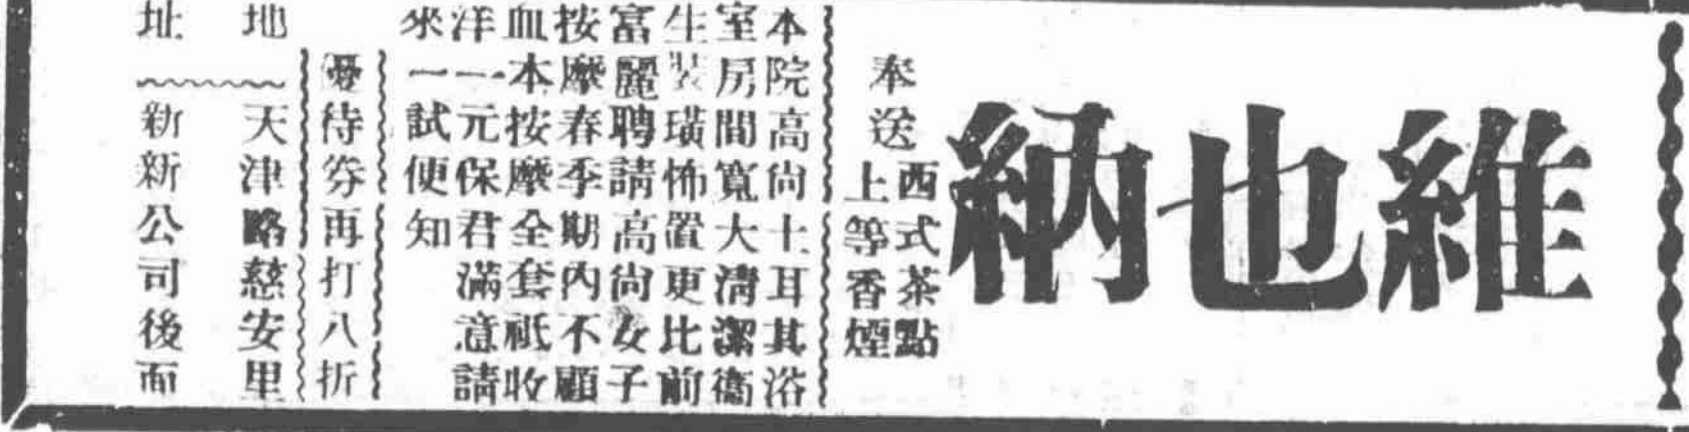 維也納
奉送
西式茶點
上等香煙
本院高尚土耳其浴
室房間寬大淸潔衞
生裝璜怖置更比前
富麗聘請高尙女子
按摩春季期內不顧
血本按摩全套祇收
洋一元保君滿意請
來一試便知
憂待券再打八折
地址
天津路慈安里
新新公司後面